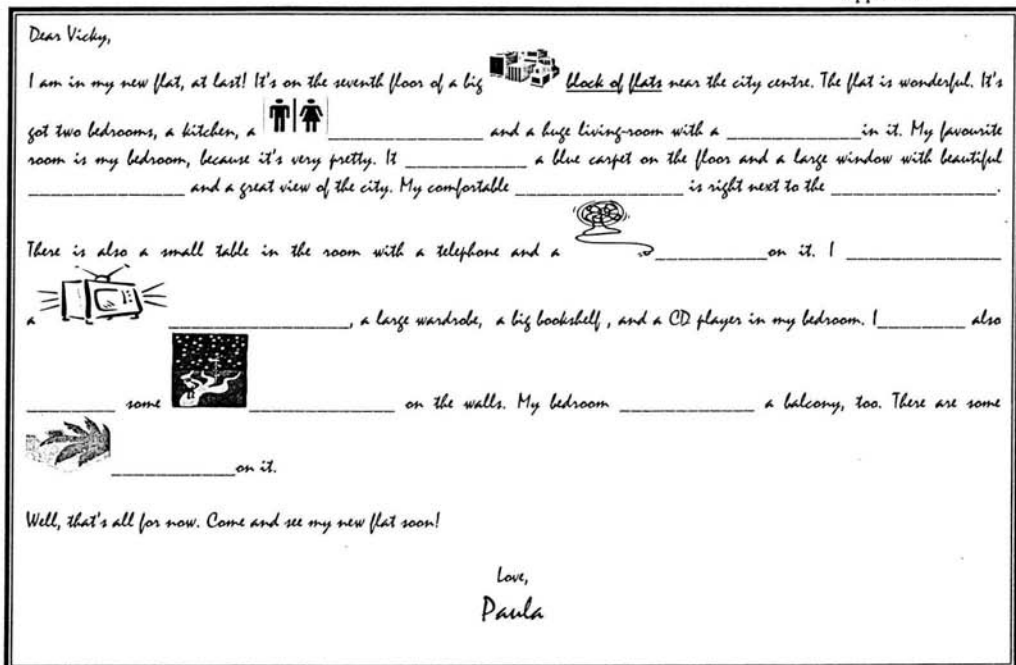 Dear Vicky,
I am in my new flat, at last! It's on the seventh floor of a big block of flats near the city centre. The flat is wonderful. It's
got two bedrooms, a kitchen, a _______________ and a huge living-room with a _______________ in it. My favourite
room is my bedroom, because it's very pretty. It _______________ a blue carpet on the floor and a large window with beautiful
_______________ and a great view of the city. My comfortable _______________ is right next to the _______________.
There is also a small table in the room with a telephone and a _______________ on it. I _______________
a _______________, a large wardrobe, a big bookshelf, and a CD player in my bedroom. I _________ also
_________ some _______________ on the walls. My bedroom _______________ a balcony, too. There are some
_______________ on it.
Well, that's all for now. Come and see my new flat soon!
Love,
Paula